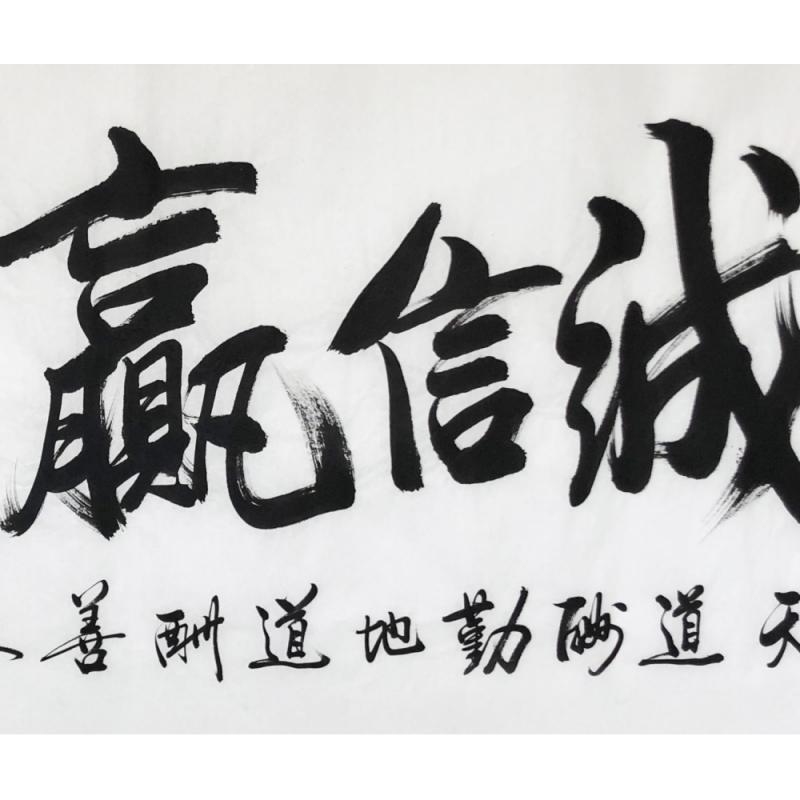 诚信赢
天道酬勤地道酬善人